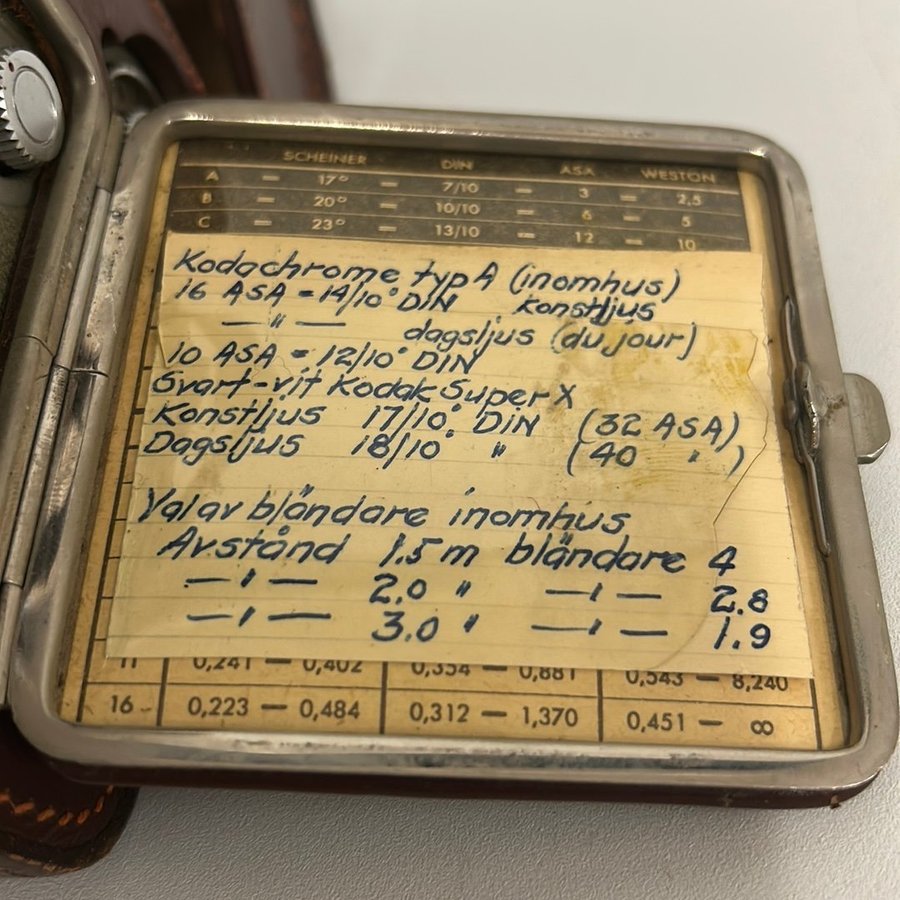 SCHEINER DIN ASA WESTON
A — 17° — 7/10 — 3 — 2,5
B — 20° — 10/10 — 6 — 5
C — 23° — 13/10 — 12 — 10
Kodachrome typ A (inomhus)
16 ASA = 14/10° DIN konstljus
— " — dagsljus (du jour)
10 ASA = 12/10° DIN
Svart-vit Kodak Super X
Konstljus 17/10° DIN (32 ASA)
Dagsljus 18/10° " (40 " )
Val av bländare inomhus
Avstånd 1.5 m bländare 4
— " — 2.0 " — " — 2.8
— " — 3.0 " — " — 1.9
11 0,241 — 0,402 0,334 — 0,881 0,543 — 8,240
16 0,223 — 0,484 0,312 — 1,370 0,451 — ∞